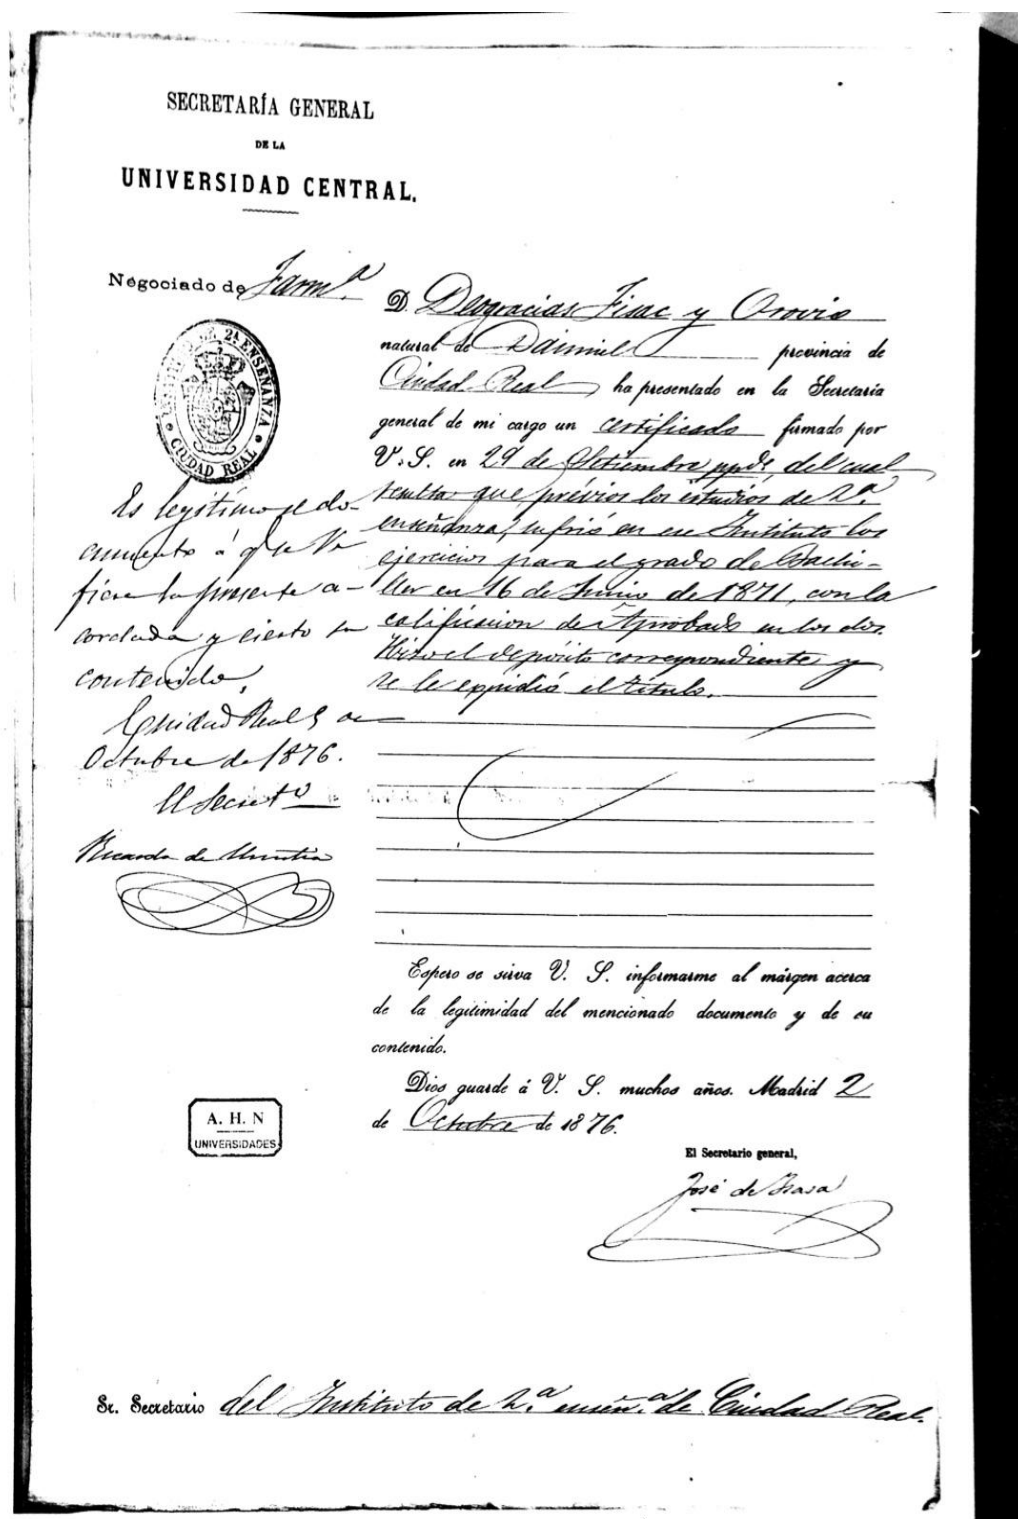 SECRETARÍA GENERAL
DE LA
UNIVERSIDAD CENTRAL.
Negociado de Farmª.
INSTITUTO DE 2ª ENSEÑANZA
CIUDAD REAL
D. Deogracias Fisac y Orovio
natural de Daimiel provincia de
Ciudad Real ha presentado en la Secretaría
general de mi cargo un certificado firmado por
V. S. en 29 de Setiembre ppdº. del cual
resulta que, prévios los estudios de 2ª.
enseñanza, sufrió en ese Instituto los
ejercicios para el grado de Bachi-
ller en 16 de Junio de 1871, con la
calificacion de Aprobado en los dos.
Hizo el depósito correspondiente y
se le expidió el título.
Es legítimo el do-
cumento á que se re
fiere la presente a-
cordada y cierto su
contenido.
Ciudad Real 5 de
Octubre de 1876.
El Secretº
Ricardo de
Espero se sirva V. S. informarme al márgen acerca
de la legitimidad del mencionado documento y de su
contenido.
Dios guarde á V. S. muchos años. Madrid 2
de Octubre de 1876.
El Secretario general,
José de Isasa
A. H. N
UNIVERSIDADES
Sr. Secretario del Instituto de 2.ª enseñ.ª de Ciudad Real.